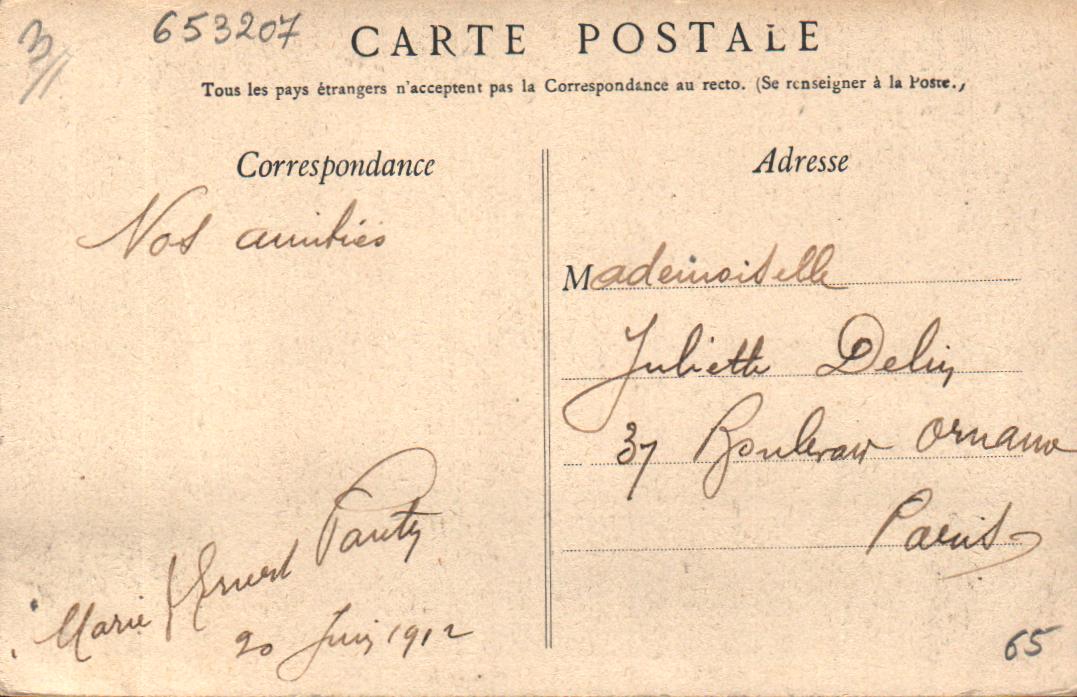 3/1
653207
CARTE POSTALE
Tous les pays étrangers n'acceptent pas la Correspondance au recto. (Se renseigner à la Poste.)
Correspondance
Nos amitiés
Marie Ernest
20 Juin 1912
Adresse
Mademoiselle
Juliette
37 Boulevar Ornano
Paris
65